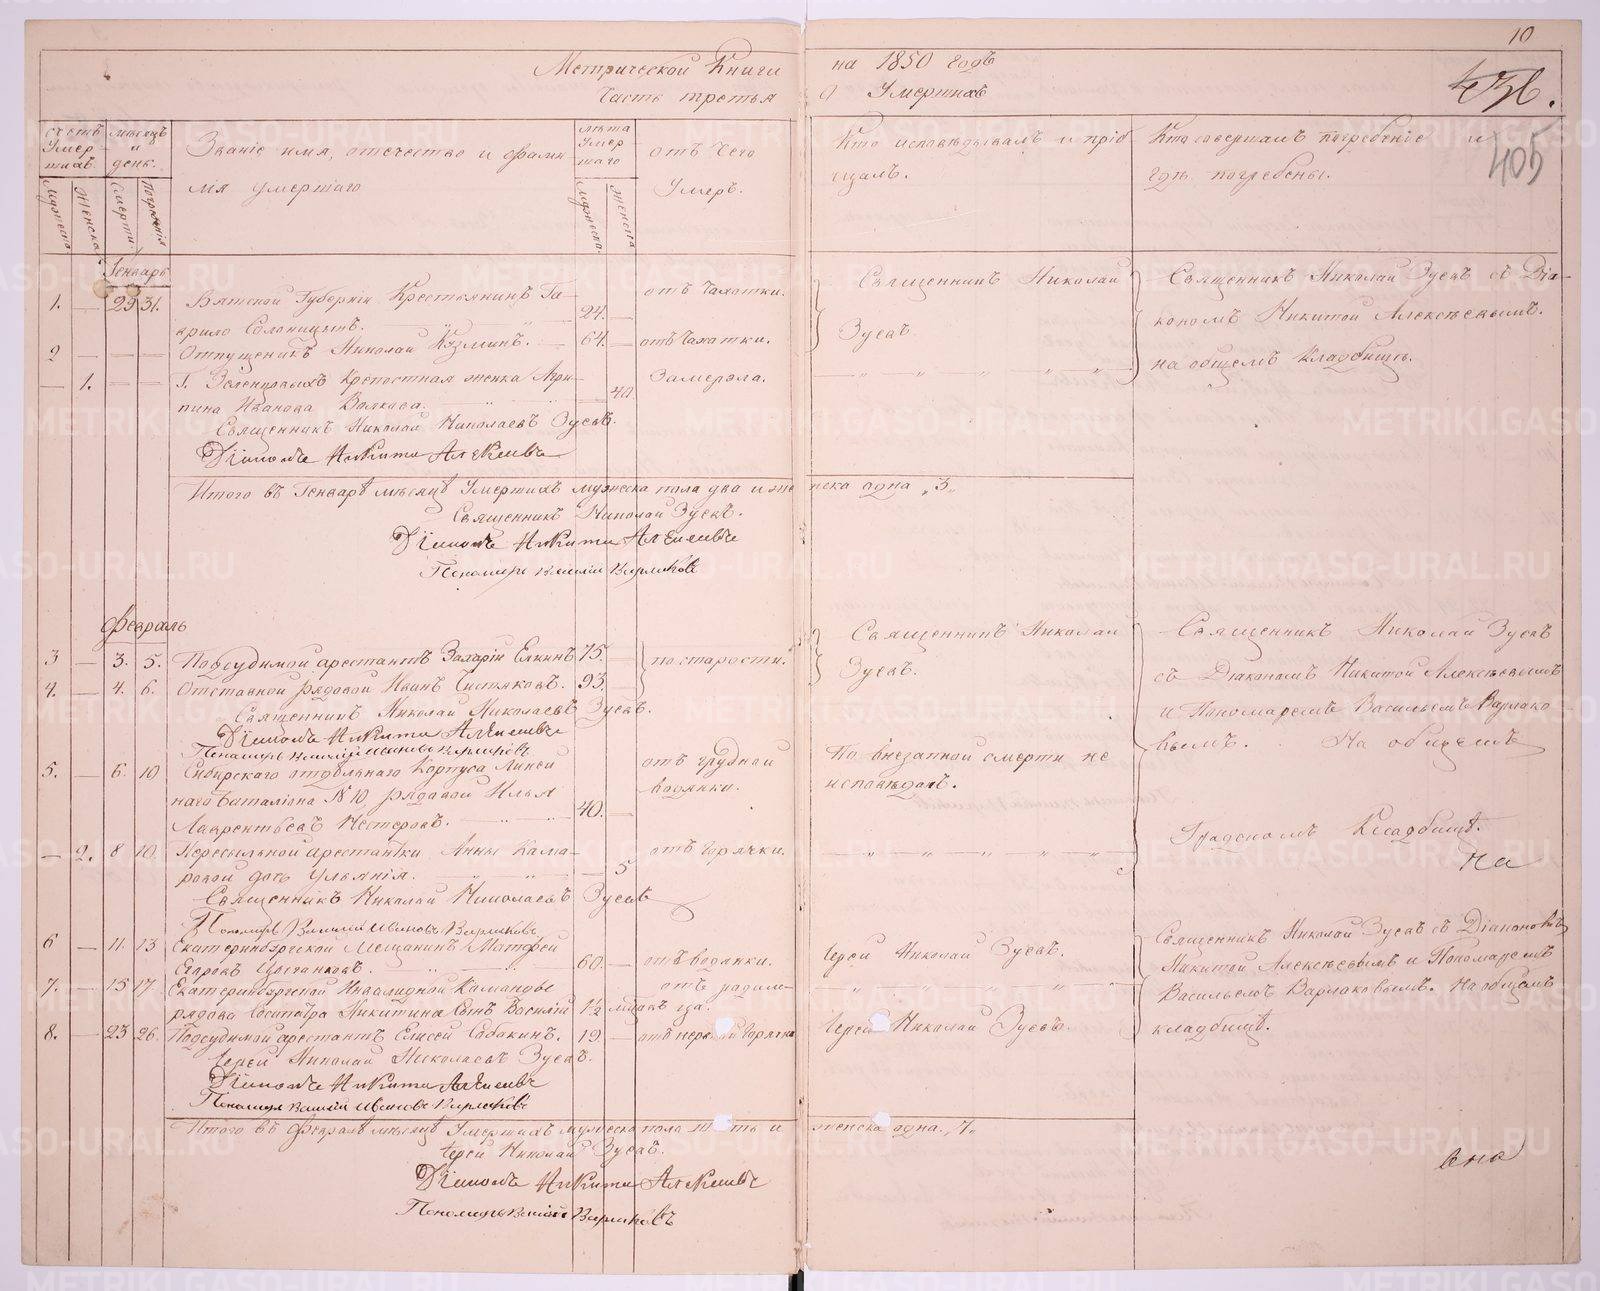 10
Метрической Книги на 1850 годъ
Часть третья о Умершихъ
436.
405
счетъ Умершихъ.
мѣсяцъ и день.
Званіе имя, отечество и фамилія умершаго
лѣта Умершаго
отъ чего Умеръ.
Кто исповѣдывалъ и пріобщалъ.
Кто совершалъ погребеніе и гдѣ погребены.
Мужеска
Женска
Смерти.
Погребенія
Мужеска.
Женска
Генварь
1. — 29 31. Вятской Губерніи Крестьянинъ Гаврило Солоницынъ. 24. — отъ Чахотки.
2 — — — Отпущеникъ Николай Кузминъ. 64. — отъ Чахотки.
— 1. — — Г. Зеленцовыхъ Крепостная женка Агрипина Иванова Волкова. — 40 Замерзла.
Священникъ Николай Зуевъ
Священникъ Николай Зуевъ съ Діакономъ Никитой Алексѣевымъ.
на общемъ Кладбищѣ.
Священникъ Николай Николаевъ Зуевъ.
Діаконъ Никита Алексѣевъ
Итого въ Генварѣ мѣсяцѣ Умершихъ мужеска пола два и женска одна „3„
Священникъ Николай Зуевъ.
Діаконъ Никита Алексѣевъ
Пономарь Василій Варлаковъ
Февраль
3 — 3. 5. Подсудимой арестантъ Захарій Елкинъ 75. — по старости.
4. — 4. 6. Отставной рядовой Иванъ Чистяковъ. 93. —
Священникъ Николай Зуевъ.
Священникъ Николай Зуевъ
съ Діакономъ Никитой Алексѣевымъ
и Пономаремъ Васильемъ Варлаковымъ. На общемъ
Градскомъ Кладбищѣ.
На
Священникъ Николай Николаевъ Зуевъ.
Діаконъ Никита Алексѣевъ
Пономарь Василій Ивановъ Варлаковъ
5. — 6. 10 Сибирскаго отдѣльнаго Корпуса Линейнаго баталіона № 10 рядовой Илья
Лаврентьевъ Нестеровъ. 40. — отъ грудной водянки.
По внезапной смерти не исповѣдалъ.
— 2. 8 10. Пересыльной арестантки Анны Комаровой дочь Ульянія. — 5 отъ горячки.
Священникъ Николай Николаевъ Зуевъ
Пономарь Василій Ивановъ Варлаковъ
6 — 11. 13 Екатеринбургской Мещанинъ Матфей
Егоровъ 60. — отъ водянки. Іерей Николай Зуевъ.
7. — 15 17. Екатеринбургской Инвалидной Команды
рядова Сосипатра Никитина Сынъ Василій 1½ мѣсяца.
8. — 23 26. Подсудимой арестантъ Елисей Собакинъ. 19. — отъ нервной горячки Іерей Николай Зуевъ.
Священникъ Николай Зуевъ съ Діакономъ
Никитой Алексѣевымъ и Пономаремъ
Васильемъ Варлаковымъ. На общемъ
кладбищѣ.
Іерей Николай Николаевъ Зуевъ.
Діаконъ Никита Алексѣевъ
Пономарь Василій Ивановъ Варлаковъ
Итого въ Февралѣ мѣсяцѣ Умершихъ мужеска пола шесть и женска одна. „7„
Іерей Николай Зуевъ.
Діаконъ Никита Алексѣевъ
Пономарь Василій Варлаковъ
METRIKI.GASO-URAL.RU